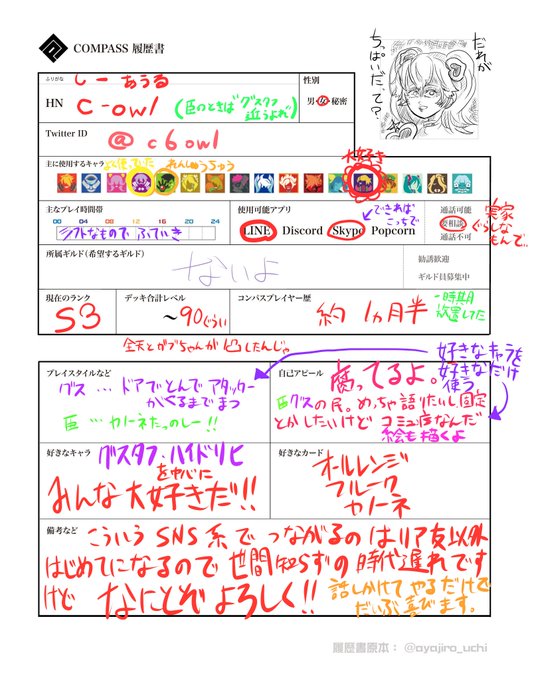 COMPASS 履歴書
だれが
ちっぱいだって?
ふりがな しーあうる
HN C-owl (臣のときは"グスタフ近うよれ")
性別
男・女・秘密
Twitter ID
@c6owl
主に使用するキャラ よく使ってた れんしゅうちゅう
大好き
主なプレイ時間帯
00 04 08 12 16 20 24
シフトなもので ふていき
使用可能アプリ
できれば
こっちで
LINE Discord Skype Popcorn
通話可能
要相談
通話不可
実家
ぐらしな
もんで..
所属ギルド(希望するギルド)
ないよ
勧誘歓迎
ギルド員募集中
現在のランク
S3
デッキ合計レベル
〜90ぐらい
コンパスプレイヤー歴
約 1ヵ月半
一時期
放置してた
プレイスタイルなど
グス … ドアでとんで アタッター
かくるまでまつ
臣 … カノーネたっのしー!!
自己アピール
腐ってるよ。
臣グスの民。めっちゃ語りたいし、固定
とかしたいけど コミュ症なんだ
絵も描くよ
好きなキャラを
好きなだけ
使う
好きなキャラ
グスタフ・ハイドリヒ
を中心に
みんな大好きだ!!
好きなカード
オールレンジ
フルーク
カノーネ
備考など
こういうSNS系でつながるのはリア友以外
はじめてになるので世間知らずの時代遅れです
けど なにとぞよろしく!!
話しかけてやるだけで
だいぶ喜びます。
履歴書原本: @ayajiro_uchi